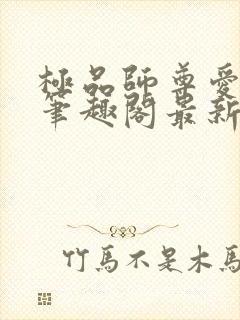 極品師尊愛
筆趣閣最新
竹馬不是木馬